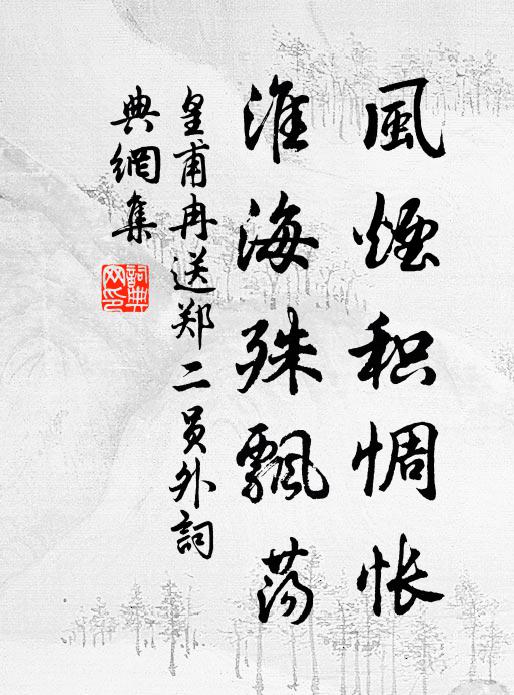 風煙积惆怅
淮海殊飄荡
皇甫冉送郑二员外詞
典網集
詞典网印